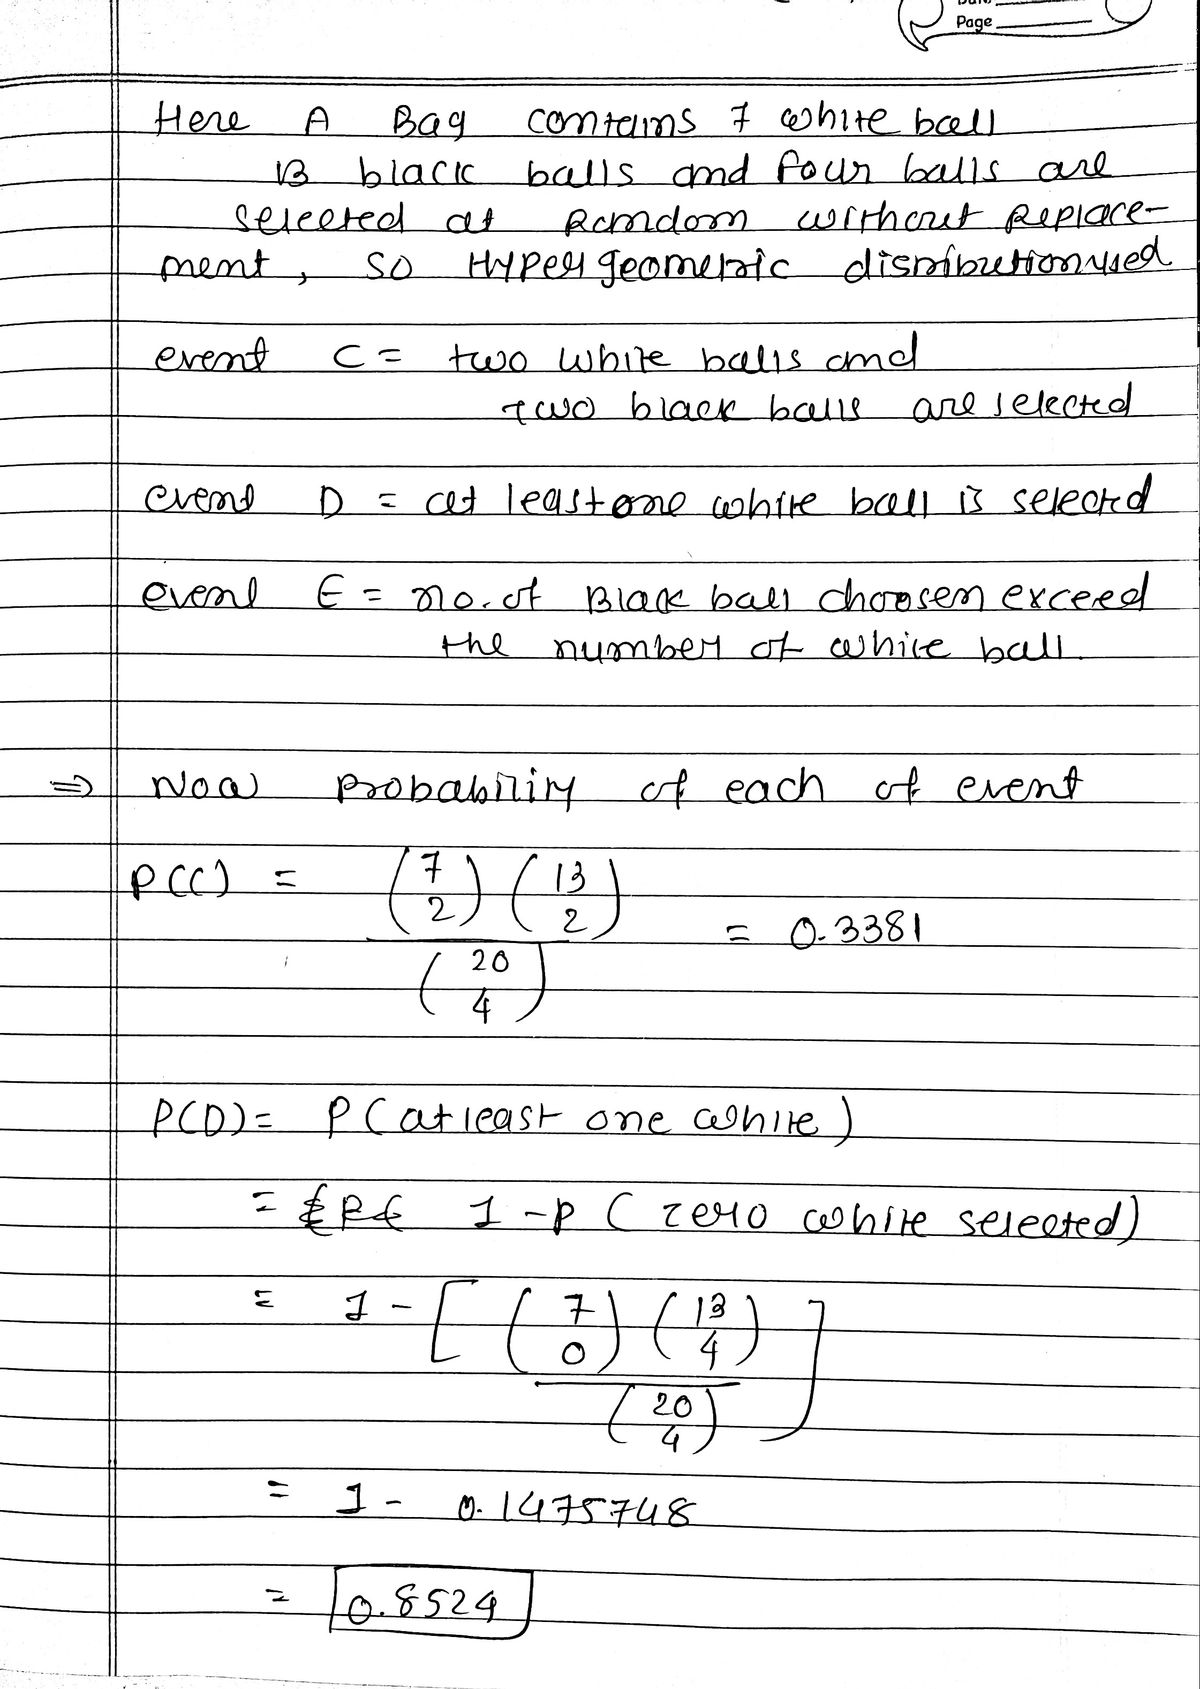 Page
Here A Bag contains 7 white ball
13 black balls and four balls are
selected at Random without Replace-
ment, so Hypergeometric distribution used
event C = two white balls and
two black balls are selected
event D = at least one white ball is selected
event E = no. of Black ball choosen exceed
the number of white ball.
⇒ Now Probability of each of event
P(C) = (7 2) (13 2) / (20 4) = 0.3381
P(D) = P(at least one white)
= 1 - P (zero white selected)
= 1 - [ (7 0) (13 4) / (20 4) ]
= 1 - 0.1475748
= 0.8524